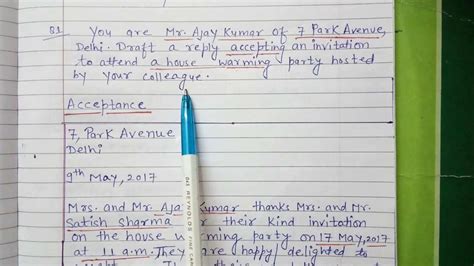 Q1 You are Mr. Ajay Kumar of 7 Park Avenue,
Delhi. Draft a reply accepting an invitation
to attend a house warming party hosted
by your colleague.
Acceptance
7, Park Avenue
Delhi
9th May, 2017
Mrs. and Mr. Kumar thanks Mrs. and Mr.
Satish Sharma their kind invitation
on the house party on 17 May, 2017
at 11 a.m. They are happy delighted to